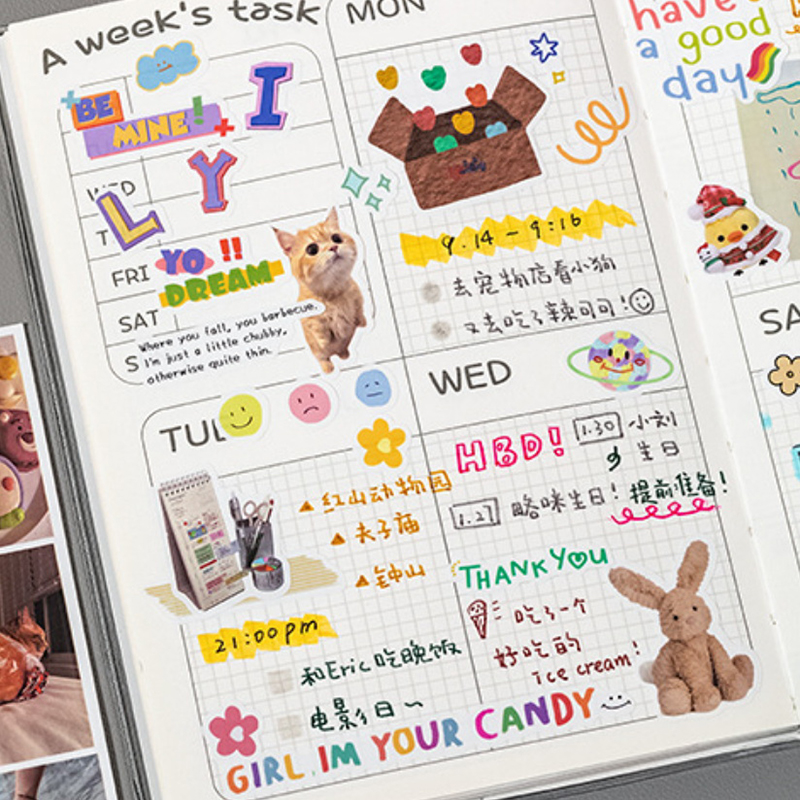 A week's task
BE
MINE!
I
L
Y
WED
T
FRI
YO !!
DREAM
SAT
S
Where you fall, you barbecue.
I'm just a little chubby,
otherwise quite thin.
MON
9.14 - 9:16
去宠物店看小狗
又去吃了辣可可!
TUE
红山动物园
夫子庙
钟山
21:00pm
和Eric吃晚饭
电影日~
GIRL IM YOUR CANDY
WED
HBD!
1.30 小刘
生日
1.27 略咪生日! 提前准备!
THANK YOU
吃了一个
好吃的
ice cream!
have
a good
day
SA